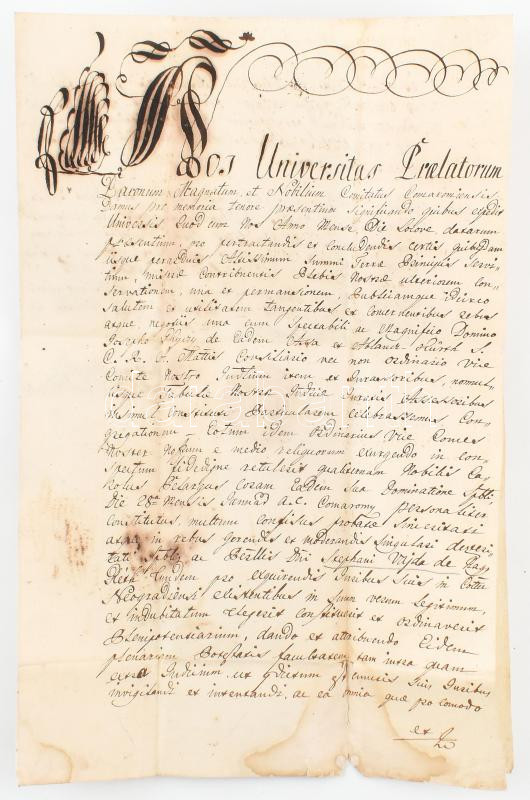 Nos Universitas Prælatorum
Baronum Magnatum et Nobilium Comitatus Comaromiensis
Damus pro memoria tenore præsentium significando quibus expedit
Universis Quod cum Nos Anno Mense, Die Solove datarum
præsentium, pro pertractandis et Concludendis certis quibusdam
iisque perarduis Altissimum Summi Terræ Principis Servi-
tium, miseræ Contribuentis Plebis Nostræ ulteriorem Con-
servationem, una et permansionem, Publicamque
salutem et utilitatem tangentibus et Concernentibus rebus
atque negotiis una cum Spectabili ac Magnifico Domino
Josepho de Eadem et S.
C. R. A. Mattis Consiliario nec non Ordinario Vice
Comite Nostro Judlium item et Jurassoribus, nonnul-
lisque Tabulæ Nostræ Judriæ Juratis Assessoribus
insimul Constituti Particularem Celebrassemus Con-
gregationem, Eotum idem Ordinarius Vice Comes
Noster Nostrum e medio religuorum exurgendo in con-
spectum fidedigne retulerit qualiternam Nobilis Ca-
rolus Coram Eadem Sua Dominatione Spbli
Die 28a Mensis Januarii a. C. Comaromy personaliter
Constitutus, multum Confisus probatæ Sinceritati
atque in rebus gerendis et moderandis Singulari dexteri-
tati Stbls ac Perllis Dni Stephani Vajda de
Eundem pro exquirendis Juribus Suis in Cottu
Neogradiensi existentibus in Suum verum Legitimum,
et indubitatum elegerit Constituerit et ordinaverit
Plenipotentiarium, dando et attribuendo Eidem
plenariam Potestatis facultatem, tam intra quam
extra Judicium, ut Juribus
invigilandi et intentandi, ac ea omnia quæ pro Comodo
et